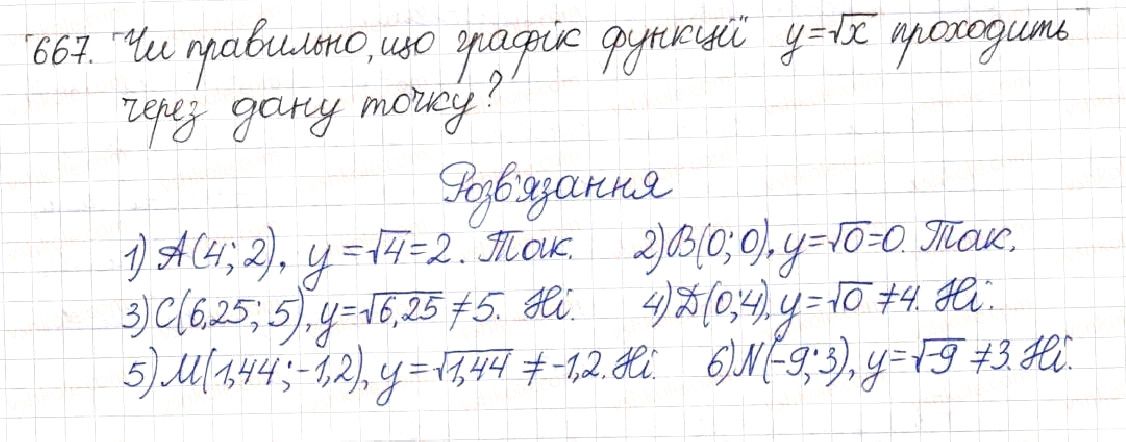 667. Чи правильно, що графік функції y=√x проходить
через дану точку?
Розв'язання
1) A(4; 2), y=√4=2. Так. 2) B(0; 0), y=√0=0. Так.
3) C(6,25; 5), y=√6,25≠5. Ні. 4) D(0;4), y=√0≠4. Ні.
5) M(1,44; -1,2), y=√1,44≠-1,2. Ні. 6) N(-9; 3), y=√-9≠3. Ні.